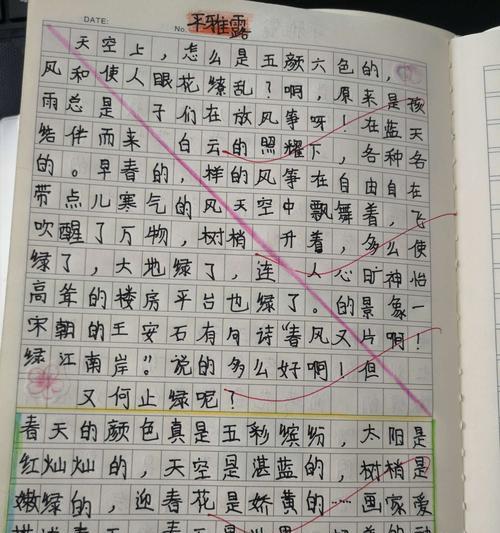 DATE:
No. 平雅露
天空上，怎么是五颜六色的，
风和使人眼花缭乱？啊，原来是孩
雨总是 子们在放风筝呀！在蓝天
结伴而来 白云的照耀下，各种各
的。早春的，样的风筝在自由自在
带点儿寒气的风天空中飘舞着，飞
吹醒了万物，树梢 升着，多么使
绿了，大地绿了，连 人心旷神怡
高耸的楼房平台也绿了。的景象一
宋朝的王安石有句诗“春风又片啊！
绿江南岸”。说的多么好啊！但
又何止绿呢？
春天的颜色真是五彩缤纷，太阳是
红灿灿的，天空是湛蓝的，树梢是
嫩绿的，迎春花是娇黄的……画家爱